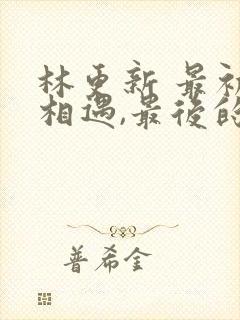 林更新 最初
相遇,最後的
普希金